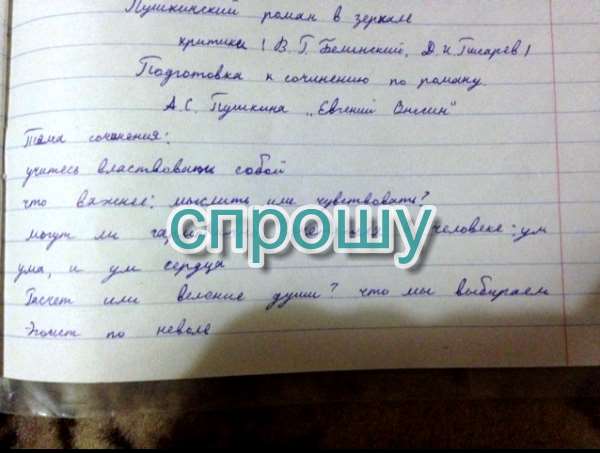 Пушкинский роман в зеркале
критики (В. Г. Белинский, Д. И. Писарев)
Подготовка к сочинению по роману
А. С. Пушкина „Евгений Онегин"
Тема сочинения:
учитесь властвовать собой
что важнее: мыслить или чувствовать?
спрошу
могут ли человеке: ум
ума, и ум сердца
Расчет или веление души? что мы выбираем
Эгоист по неволе